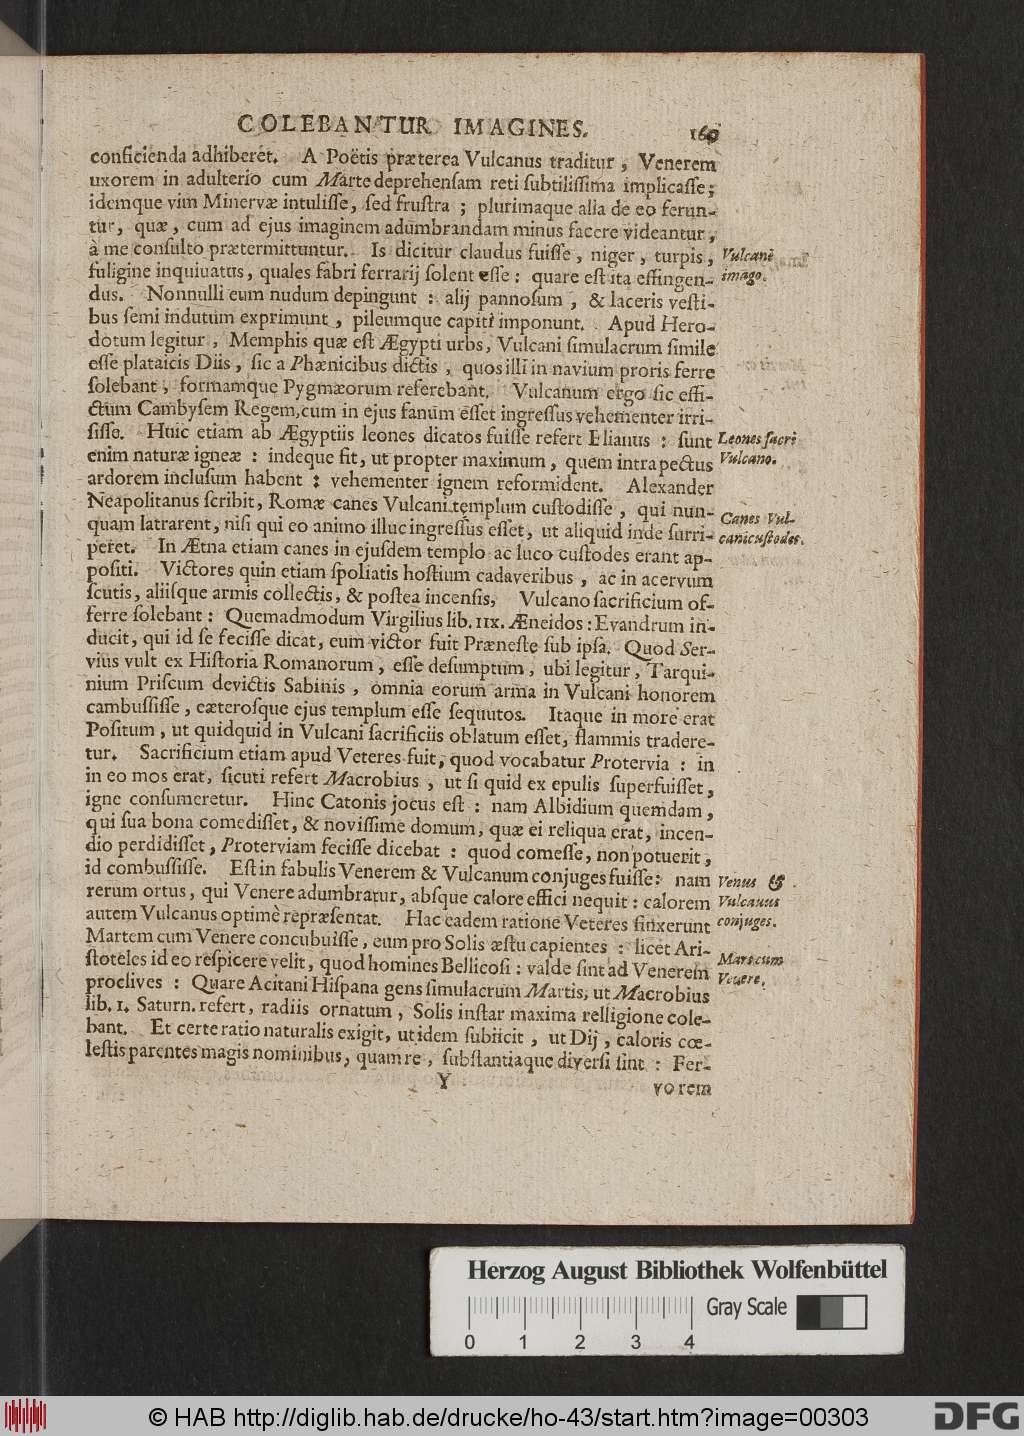 COLEBANTUR IMAGINES. 169
conficienda adhiberet. A Poëtis præterea Vulcanus traditur, Venerem
uxorem in adulterio cum Marte deprehensam reti subtilissima implicasse;
idemque vim Minervæ intulisse, sed frustra; plurimaque alia de eo ferun-
tur, quæ, cum ad ejus imaginem adumbrandam minus facere videantur,
à me consulto prætermittuntur. Is dicitur claudus fuisse, niger, turpis,
Vulcani
fuligine inquiuatus, quales fabri ferrarij solent esse: quare est ita effingen-
imago.
dus. Nonnulli eum nudum depingunt: alij pannosum, & laceris vesti-
bus semi indutum exprimunt, pileumque capiti imponunt. Apud Hero-
dotum legitur, Memphis quæ est Ægypti urbs, Vulcani simulacrum simile
esse plataicis Diis, sic a Phænicibus dictis, quos illi in navium proris ferre
solebant, formamque Pygmæorum referebant. Vulcanum ergo sic effi-
ctum Cambysem Regem, cum in ejus fanum esset ingressus vehementer irri-
sisse. Huic etiam ab Ægyptiis leones dicatos fuisse refert Elianus: sunt
Leones sacri
enim naturæ igneæ: indeque fit, ut propter maximum, quem intra pectus
Vulcano.
ardorem inclusum habent: vehementer ignem reformident. Alexander
Neapolitanus scribit, Romæ canes Vulcani templum custodisse, qui nun-
Canes Vul-
quam latrarent, nisi qui eo animo illuc ingressus esset, ut aliquid inde surri-
cani custodes.
peret. In Ætna etiam canes in ejusdem templo ac luco custodes erant ap-
positi. Victores quin etiam spoliatis hostium cadaveribus, ac in acervum
scutis, aliisque armis collectis, & postea incensis, Vulcano sacrificium of-
ferre solebant: Quemadmodum Virgilius lib. IIX. Æneidos: Evandrum in-
ducit, qui id se fecisse dicat, eum victor fuit Præneste sub ipsa. Quod Ser-
vius vult ex Historia Romanorum, esse desumptum, ubi legitur, Tarqui-
nium Priscum devictis Sabinis, omnia eorum arma in Vulcani honorem
cambussisse, cæterosque ejus templum esse sequutos. Itaque in more erat
Positum, ut quidquid in Vulcani sacrificiis oblatum esset, flammis tradere-
tur. Sacrificium etiam apud Veteres fuit, quod vocabatur Protervia: in
in eo mos erat, sicuti refert Macrobius, ut si quid ex epulis superfuisset,
igne consumeretur. Hinc Catonis jocus est: nam Albidium quemdam,
qui sua bona comedisset, & novissime domum, quæ ei reliqua erat, incen-
dio perdidisset, Proterviam fecisse dicebat: quod comesse, non potuerit,
id combussisse. Est in fabulis Venerem & Vulcanum conjuges fuisse: nam
Venus &
rerum ortus, qui Venere adumbratur, absque calore effici nequit: calorem
Vulcanus
autem Vulcanus optimè repræsentat. Hac eadem ratione Veteres finxerunt
conjuges.
Martem cum Venere concubuisse, eum pro Solis æstu capientes: licet Ari-
Mars cum
stoteles id eo respicere velit, quod homines Bellicosi: valde sint ad Venerem
Venere.
proclives: Quare Acitani Hispana gens simulacrum Martis, ut Macrobius
lib. 1. Saturn. refert, radiis ornatum, Solis instar maxima relligione cole-
bant. Et certe ratio naturalis exigit, ut idem subiicit, ut Dij, caloris cœ-
lestis parentes magis nominibus, quam re, substantiaque diversi sint: Fer-
Y vorem
Herzog August Bibliothek Wolfenbüttel
Gray Scale
0 1 2 3 4
© HAB http://diglib.hab.de/drucke/ho-43/start.htm?image=00303 DFG